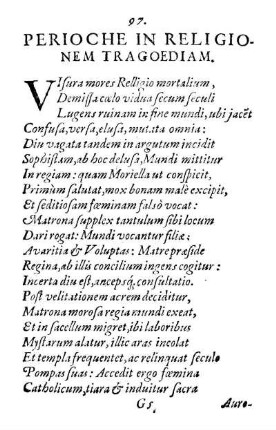 97.
PERIOCHE IN RELIGIO-
NEM TRAGOEDIAM.
VIsura mores Relligio mortalium,
Demissa cœlo vidua secum seculi
Lugens ruinam in fine mundi, ubi jacẽt
Confusa, versa, elusa, mutita omnia:
Diu vagata tandem in argutum incidit
Sophistam, ab hoc delusa, Mundi mittitur
In regiam: quam Moriella ut conspicit,
Primùm salutat, mox bonam malè excipit,
Et seditiosam fæminam falsò vocat:
Matrona supplex tantulum sibi locum
Dari rogat: Mundi vocantur filiæ;
Avaritia & Voluptas: Matre præside
Regina, ab illis concilium ingens cogitur:
Incerta diu est, ancepsq́, consultatio.
Post velitationem acrem deciditur,
Matrona morosa regia mundi exeat,
Et in sacellum migret, ibi laboribus
Mystarum alatur, illic aras incolat
Et templa frequentet, ac relinquat seculo
Pompas suas: Accedit ergo fœmina
Catholicum, tiara & induitur sacra
G5 Auro-